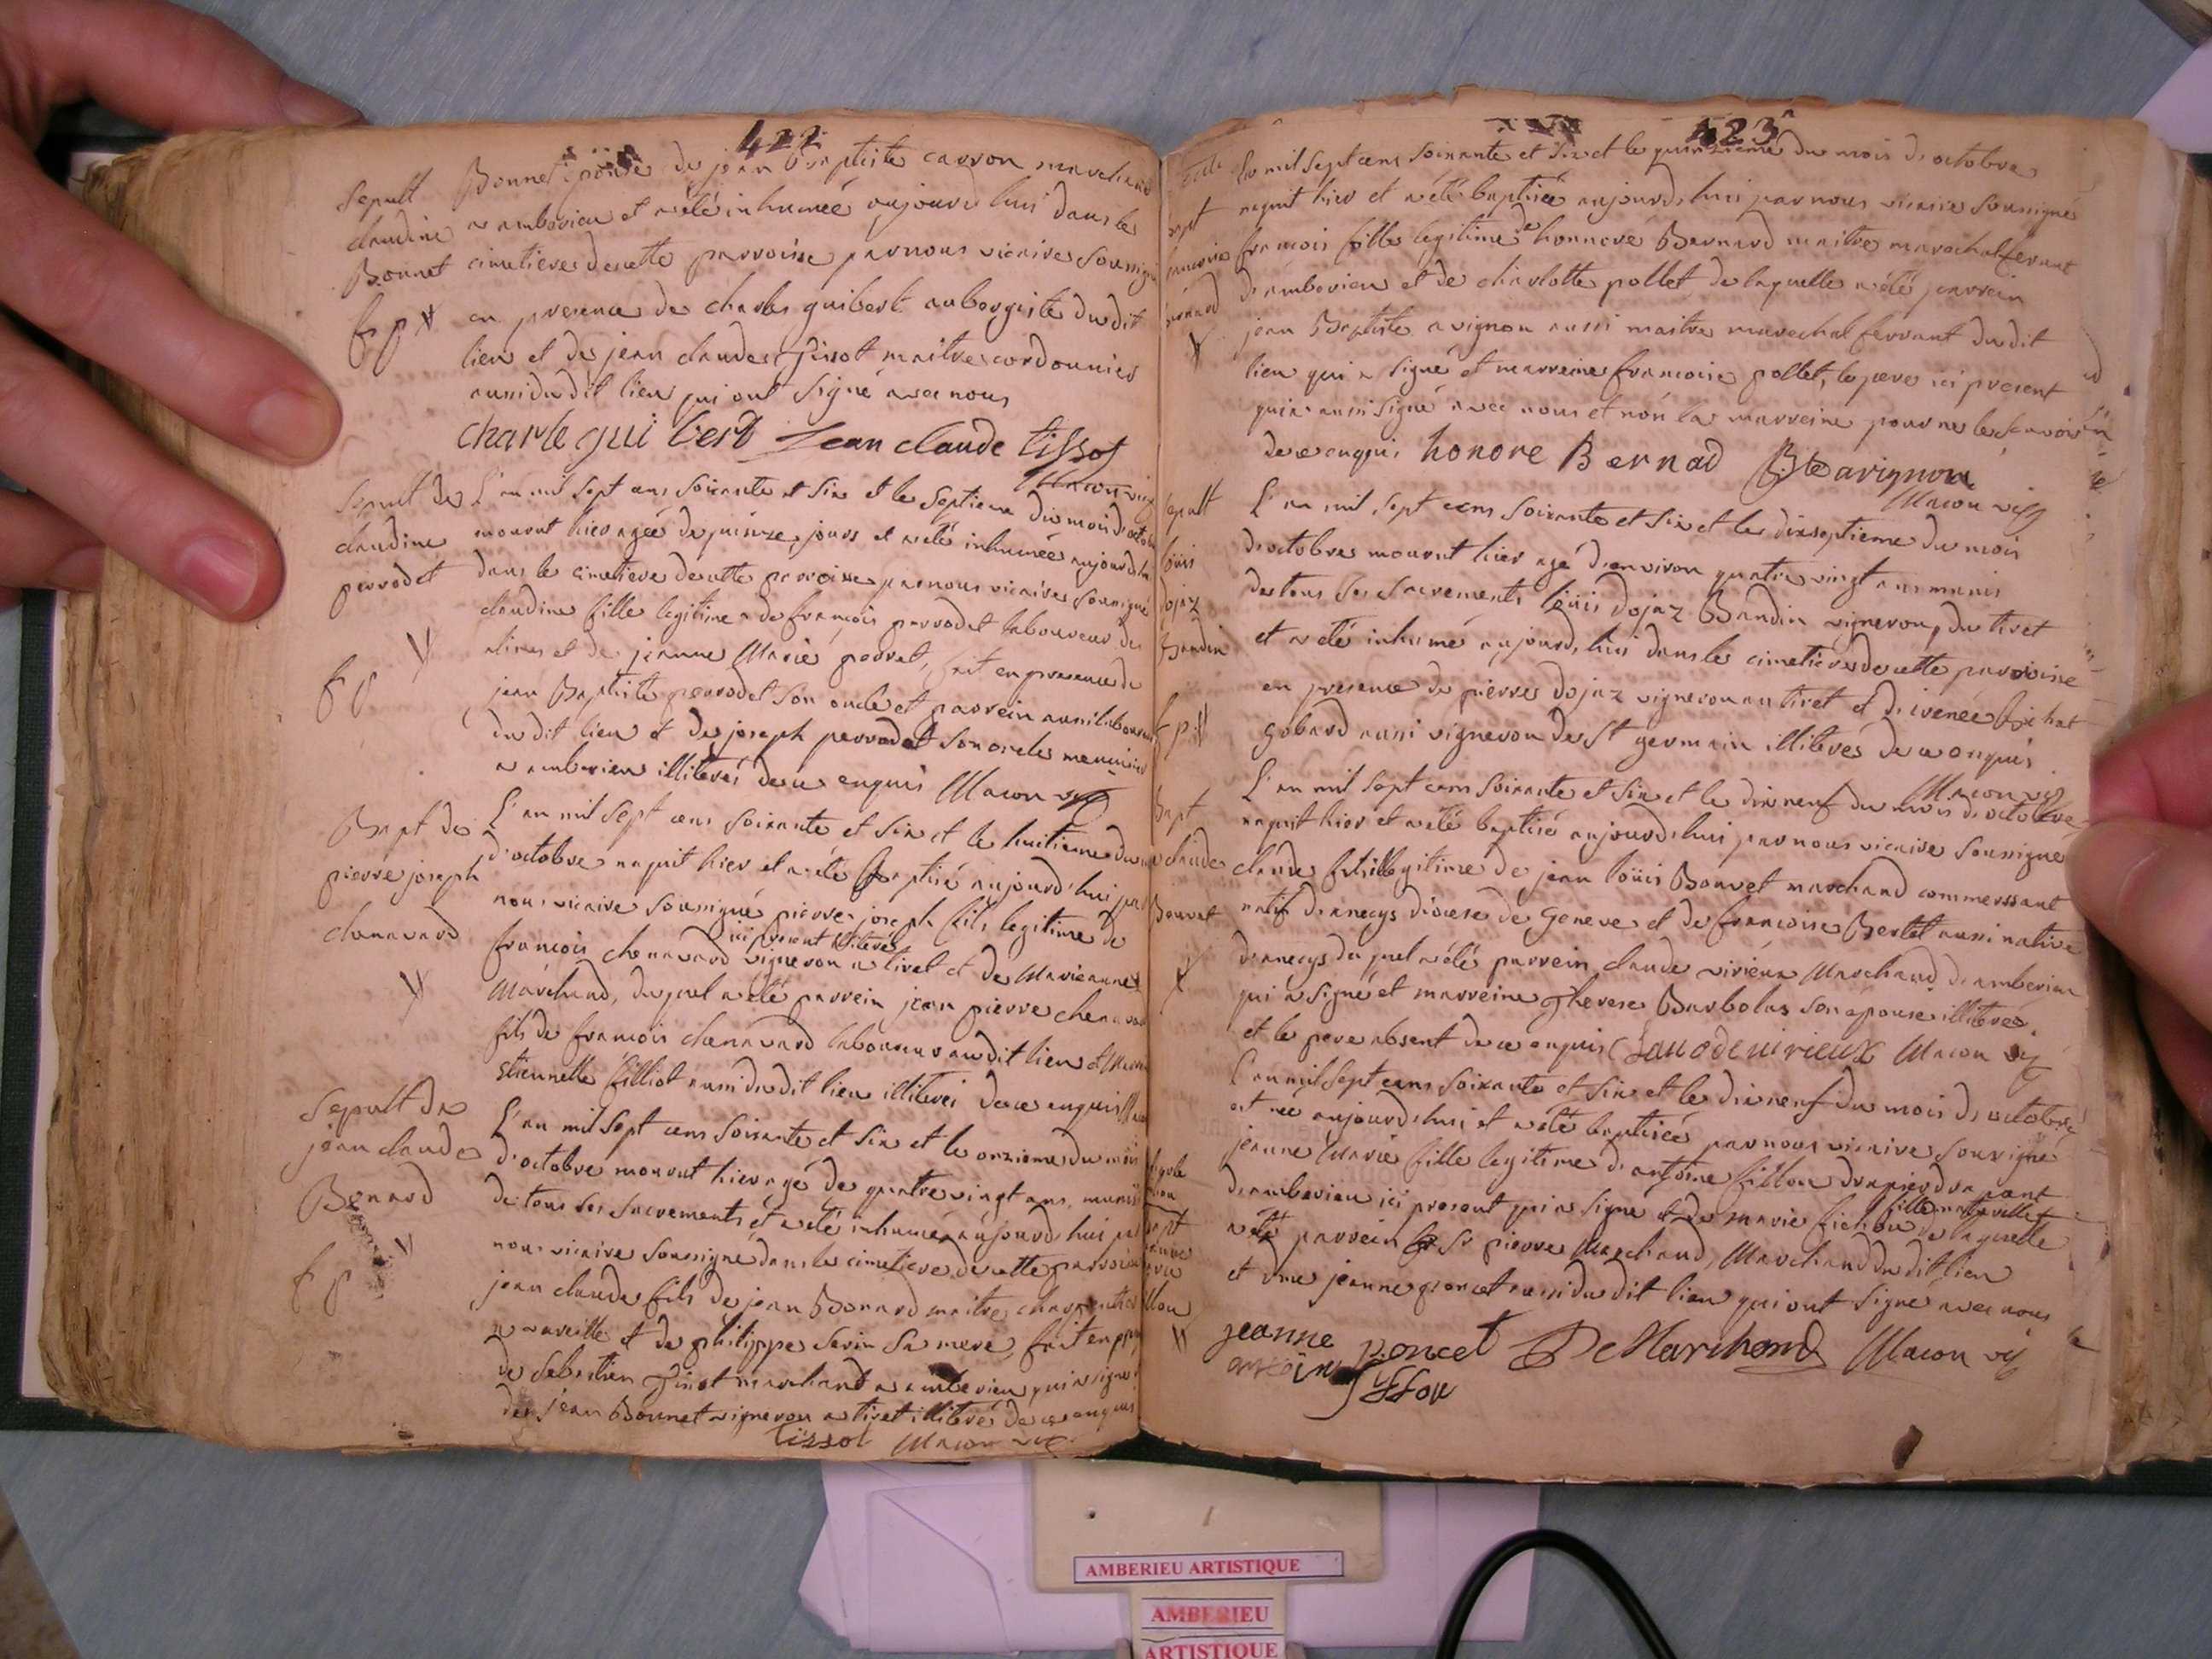 422
Sepult
claudine
Bonnet
Bonnet épouse de jean Baptiste carron marchand
a amberieu et a été inhumée aujourd'hui dans le
cimetiere de cette parroisse par nous vicaire soussigné
en presence de charles guibert aubergiste du dit
lieu et de jean claude tissot maitre cordonnier
aussi du dit lieu qui ont signé avec nous
charle gui bert Jean claude tissot
Macon vic
Sepult de
claudine
perrodet
L'an mil sept cens soixante et six et le septieme du mois d'octobre
mourut hier agée de quinze jours et a été inhumée aujourd'hui
dans le cimetiere de cette parroisse par nous vicaire soussigné
claudine fille legitime de françois perrodet laboureur de
et de jeanne Marie perret, fait en presence de
jean Baptiste perrodet son oncle et parrein aussi laboureur
du dit lieu et de joseph perrodet son oncle
a amberieu illiterés de ce enquis Macon vic
Bapt de
pierre joseph
chenavard
L'an mil sept cens soixante et six et le huitieme du mois
d'octobre naquit hier et a été Baptisé aujourd'hui par
nous vicaire soussigné pierre joseph fils legitime de
ici present illiteré
françois chenavard vigneron a tiret et de Marieanne
Marchand, duquel a été parrein jean pierre chenavard
fils de françois chenavard laboureur au dit lieu et
filliot aussi du dit lieu illiterés de ce enquis
Sepult de
jean claude
Bonard
L'an mil sept cens soixante et six et le onzieme du mois
d'octobre mourut hier agé de quatre vingt ans, munis
de tous ses sacrements et a été inhumé aujourd'hui par
nous vicaire soussigné dans le cimetiere de cette parroisse
jean claude fils de jean Bonard maitre charpentier
a vareille et de philippe savin sa mere, fait en
de sebastien tissot marchand a amberieu qui a signé
de jean Bonnet vigneron a tiret illiteré de ce enquis
tissot Macon vic
423
francoise
L'an mil sept cens soixante et six et le quinzieme du mois d'octobre
naquit hier et a été baptisée aujourd'hui par nous vicaire soussigné
françois fille legitime de honnoré Bernard maitre marechal ferrant
d'amberieu et de charlotte pollet, de laquelle a été parrein
jean Baptiste avignon aussi maitre marechal ferrant du dit
lieu qui a signé et marreine francoise pollet, le pere ici present
qui a aussi signé avec nous et non la marreine pour ne le scavoir
de ce enquis honore Bernad Bte avignon
Macon vic
Sepult
loüis
dojaz
Bandin
L'an mil sept cens soixante et six et le dixseptieme du mois
d'octobre mourut hier agé d'environ quatre vingt ans munis
de tous ses sacrements loüis dojaz Bandin vigneron du tiret
et a été inhumé aujourd'hui dans le cimetiere de cette parroisse
en presence de pierre dojaz vigneron au tiret et d'irenée
gobard aussi vigneron de St germain illiterés de ce enquis
Macon vic
Bapt
claude
Bouvet
L'an mil sept cens soixante et six et le dixneuf du mois d'octobre
naquit hier et a été baptisé aujourd'hui par nous vicaire soussigné
claude fils legitime de jean loüis Bouvet marchand commerssant
natif d'annecys diocese de Geneve et de francoise Bertet aussi native
d'annecys duquel a été parrein claude virieux Marchand d'amberieu
qui a signé et marreine therese Barbolas son epouse illiterée
et le pere absent de ce enquis Macon vic
L'an mil sept cens soixante et six et le dixneuf du mois d'octobre
est née aujourd'hui et a été baptisée par nous vicaire soussigné
jeanne Marie fille legitime d'antoine fillou drapier drapant
d'amberieu ici present qui a signé et de marie fichou de laquelle
a été parrein Sr pierre Marchand, Marchand du dit lieu
et Dme jeanne poncet aussi du dit lieu qui ont signé avec nous
jeanne poncet De Marchand Macon vic
AMBERIEU ARTISTIQUE
AMBERIEU
ARTISTIQUE